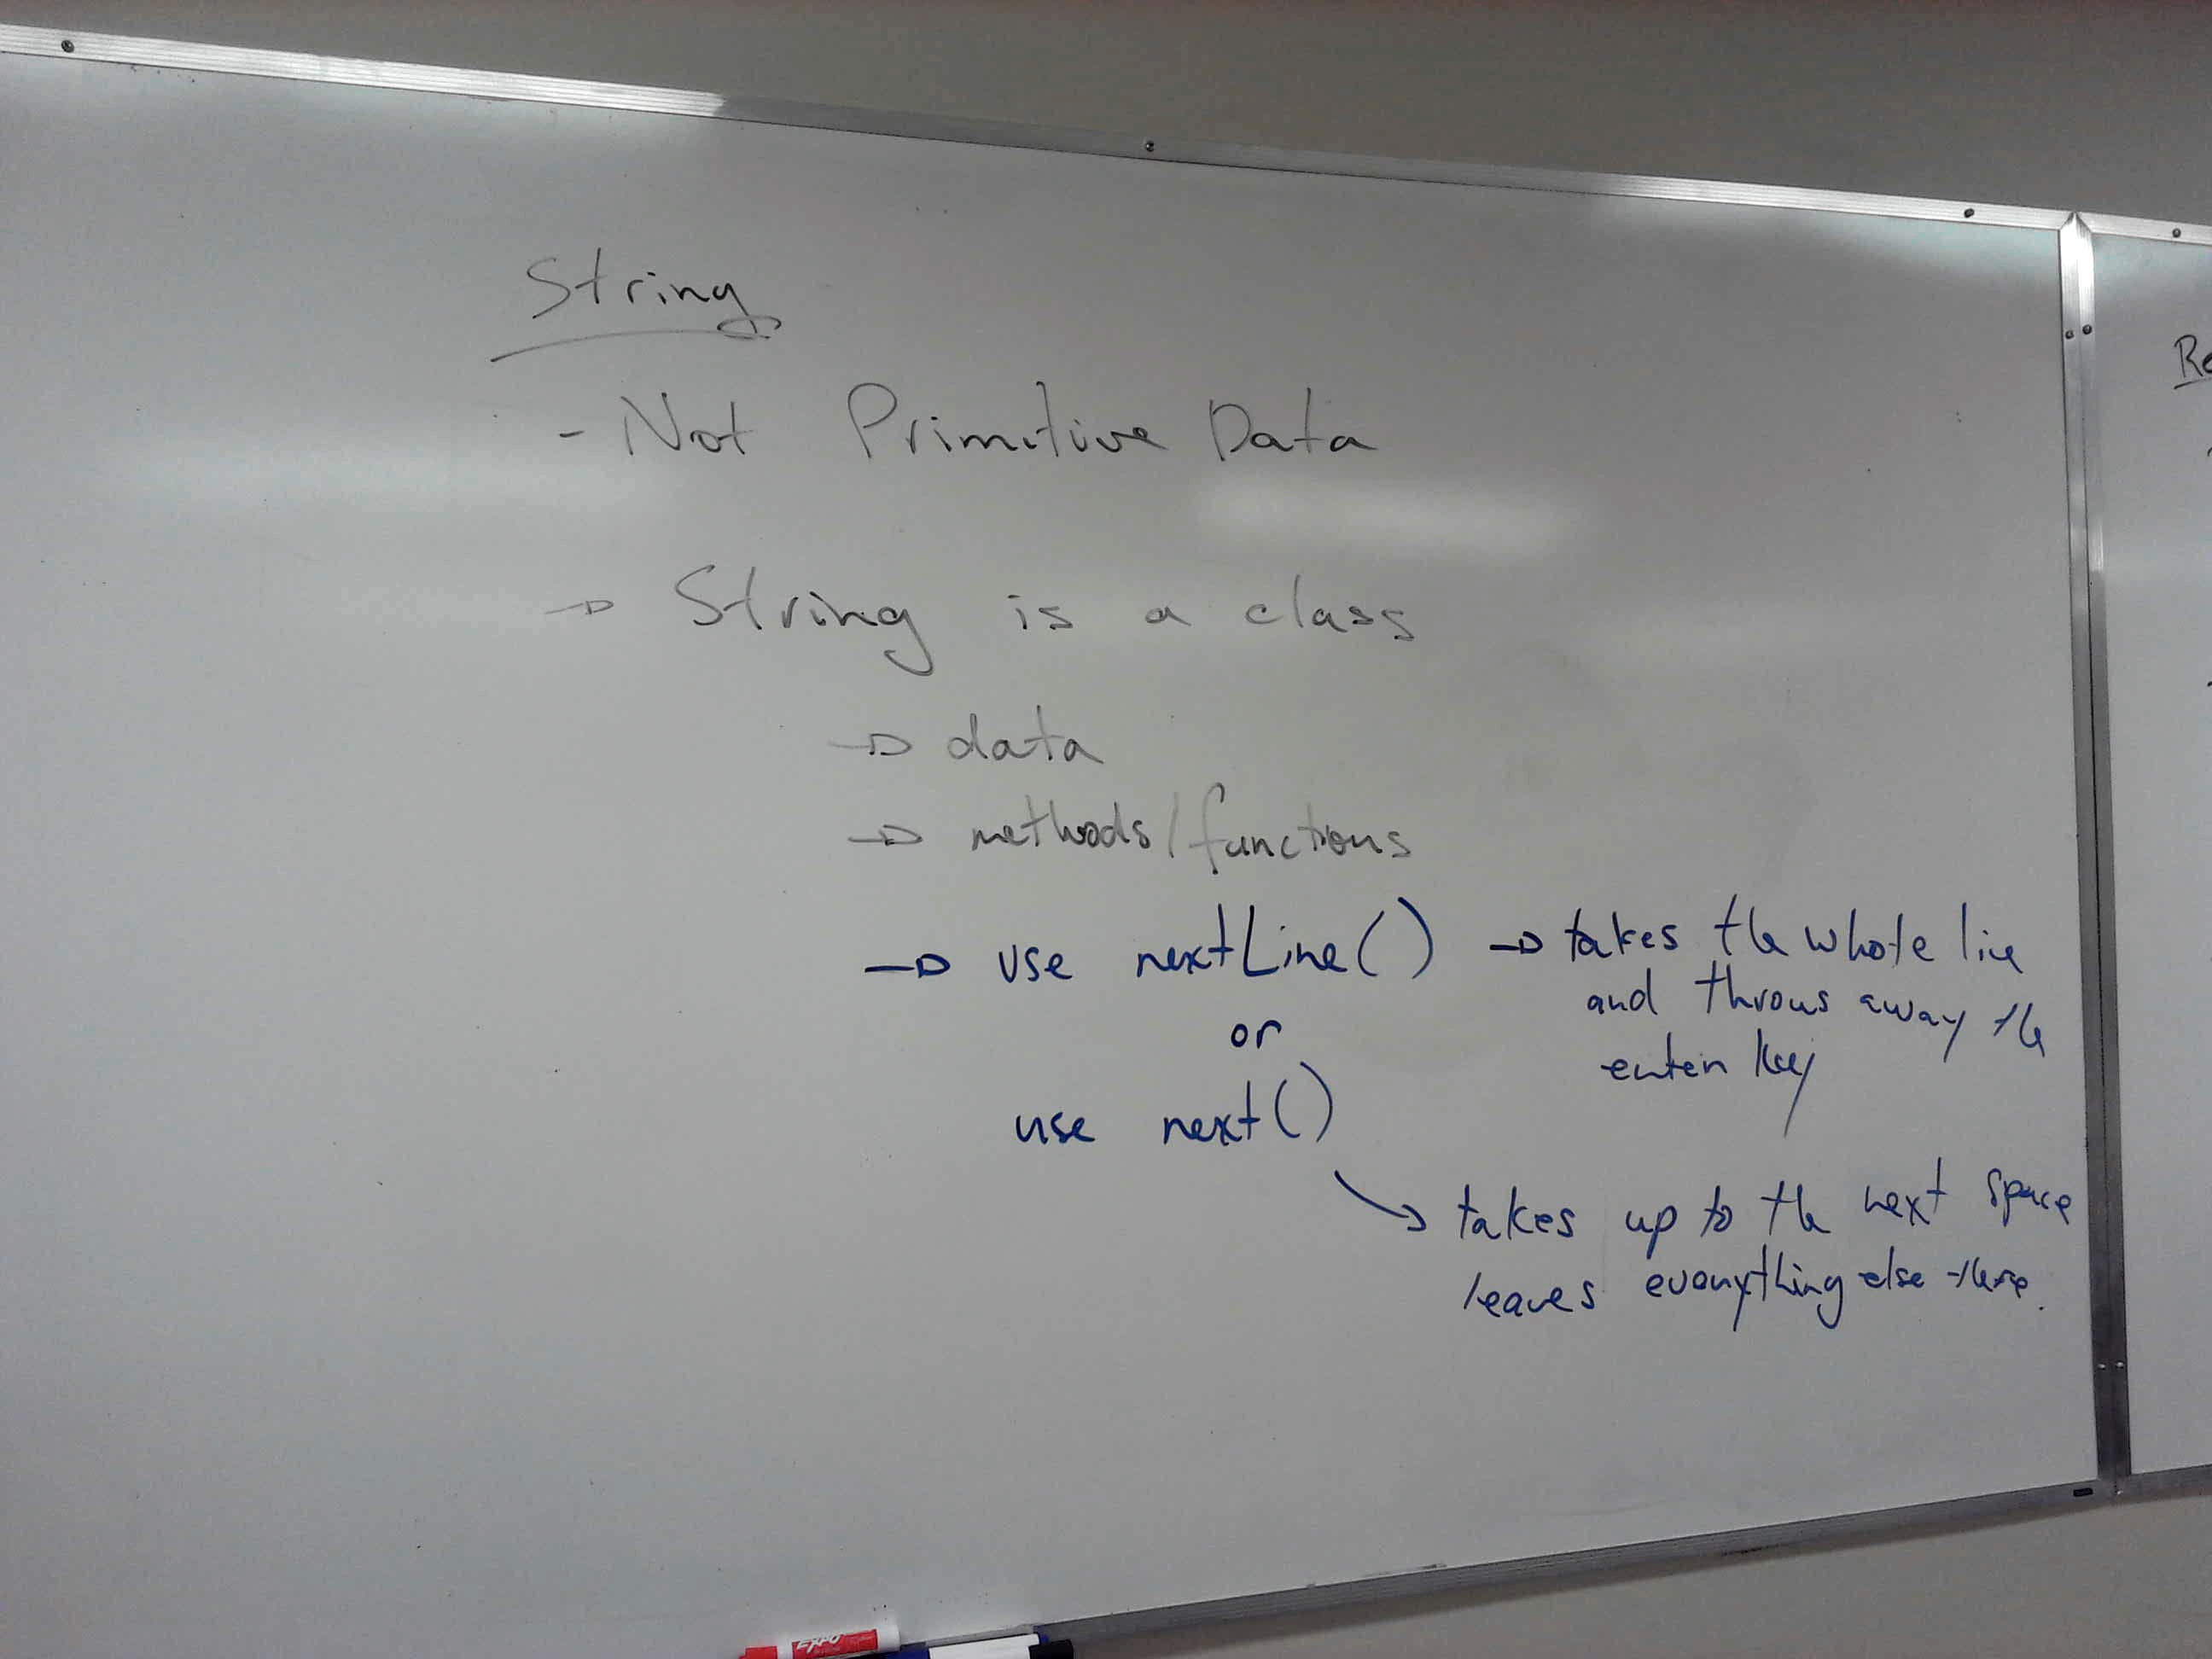 String
- Not Primitive Data
→ String is a class
→ data
→ methods/functions
→ use nextLine() → takes the whole line
and throws away the
enter key
or
use next()
→ takes up to the next space
leaves everything else there.
Re
EXPO